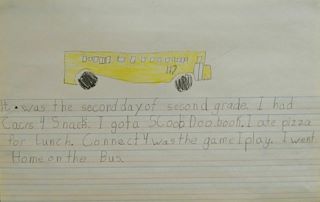 117
It was the second day of second grade. I had
Cacrs 4 Snack. I got a Scoob Doo. book. I ate pizza
for Lunch. Connect 4 was the game I play. I went
Home on the Bus.